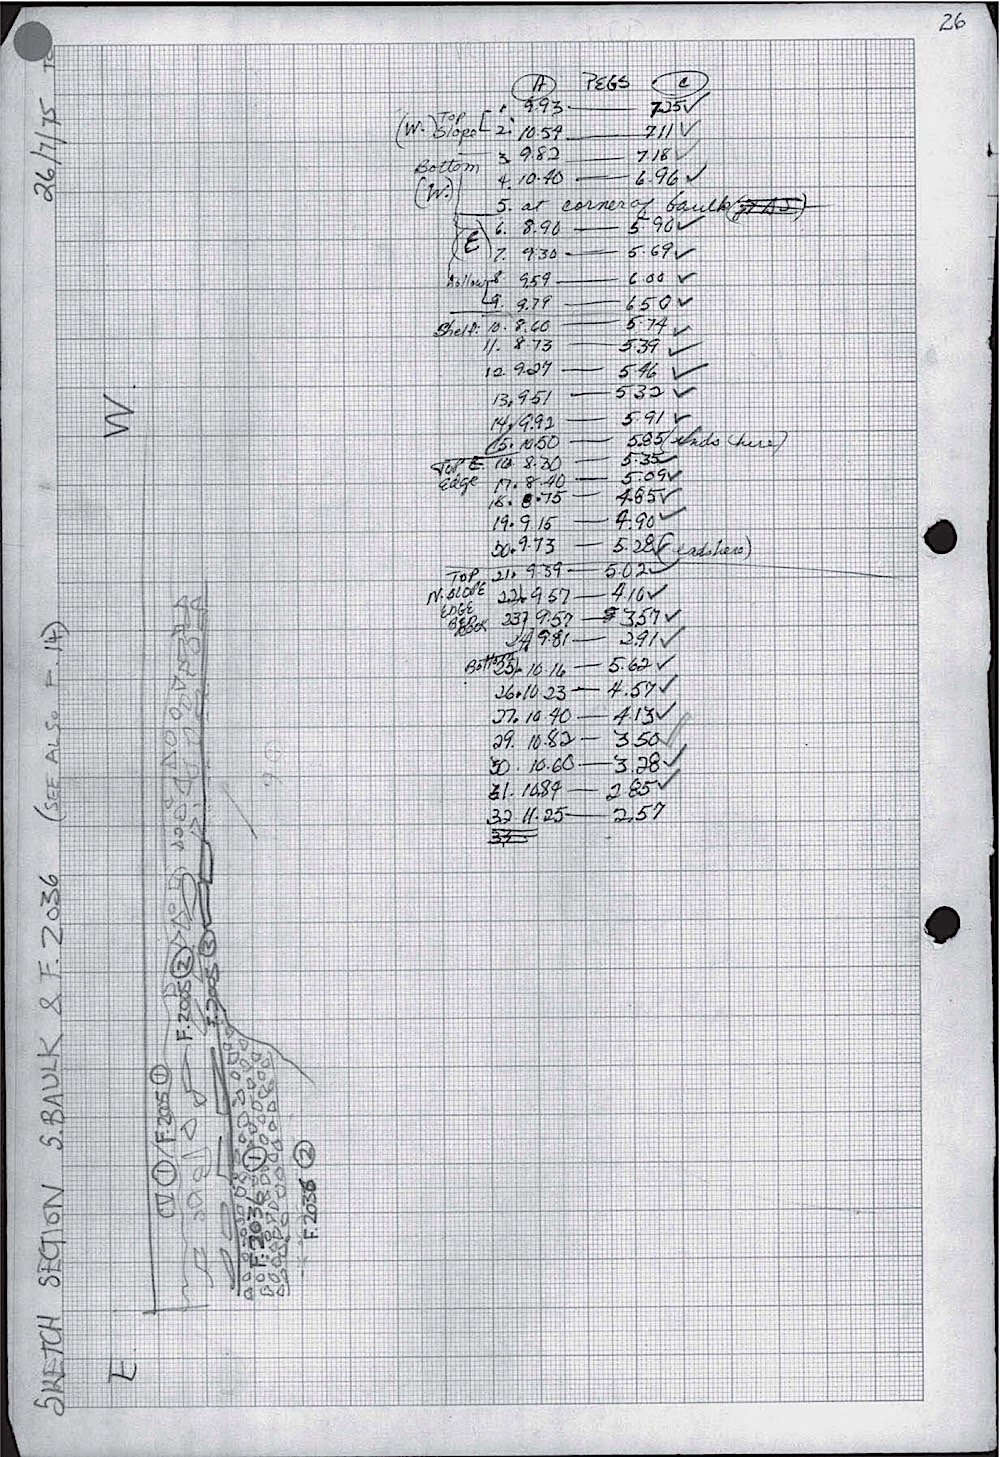 26
26/7/75
A PEGS C
(W.) Top Slope
1. 9.93 — 7.25 ✓
2. 10.54 — 7.11 ✓
Bottom (W.)
3. 9.82 — 7.18 ✓
4. 10.40 — 6.96 ✓
5. at corner of baulk
(E)
6. 8.90 — 5.90 ✓
7. 9.30 — 5.69 ✓
hollow
8 9.59 — 6.00 ✓
9. 9.79 — 6.50 ✓
Shelf:
10. 8.60 — 5.74 ✓
11. 8.73 — 5.39 ✓
12 9.27 — 5.46 ✓
13. 9.51 — 5.32 ✓
14. 9.92 — 5.91 ✓
15. 10.50 — 5.85 (ends here)
TOP E Edge
16. 8.30 — 5.35 ✓
17. 8.40 — 5.09 ✓
18. 8.75 — 4.85 ✓
19. 9.15 — 4.90 ✓
20. 9.73 — 5.28 ✓ (ends here)
TOP N. SLOPE EDGE
21. 9.59 — 5.02 ✓
22. 9.57 — 4.10 ✓
23. 9.57 — 3.57 ✓
24. 9.81 — 2.91 ✓
Bottom
25. 10.16 — 5.62 ✓
26. 10.23 — 4.57 ✓
27. 10.40 — 4.13 ✓
29. 10.82 — 3.50 ✓
30. 10.60 — 3.28 ✓
31. 10.84 — 2.85 ✓
32 11.25 — 2.57
33
SKETCH SECTION S.BAULK & F.2036 (SEE ALSO F.14)
E
W
CV ① / F.205 ①
F.2005 ②
F.2005 ③
F.2036 ①
F.2036 ②